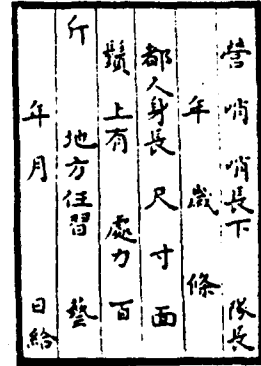 營 哨 哨長下 隊長
年 歲 條
都人身長 尺 寸 面
鬚 上有 處力 百
斤 地方住習 藝
年 月 日給